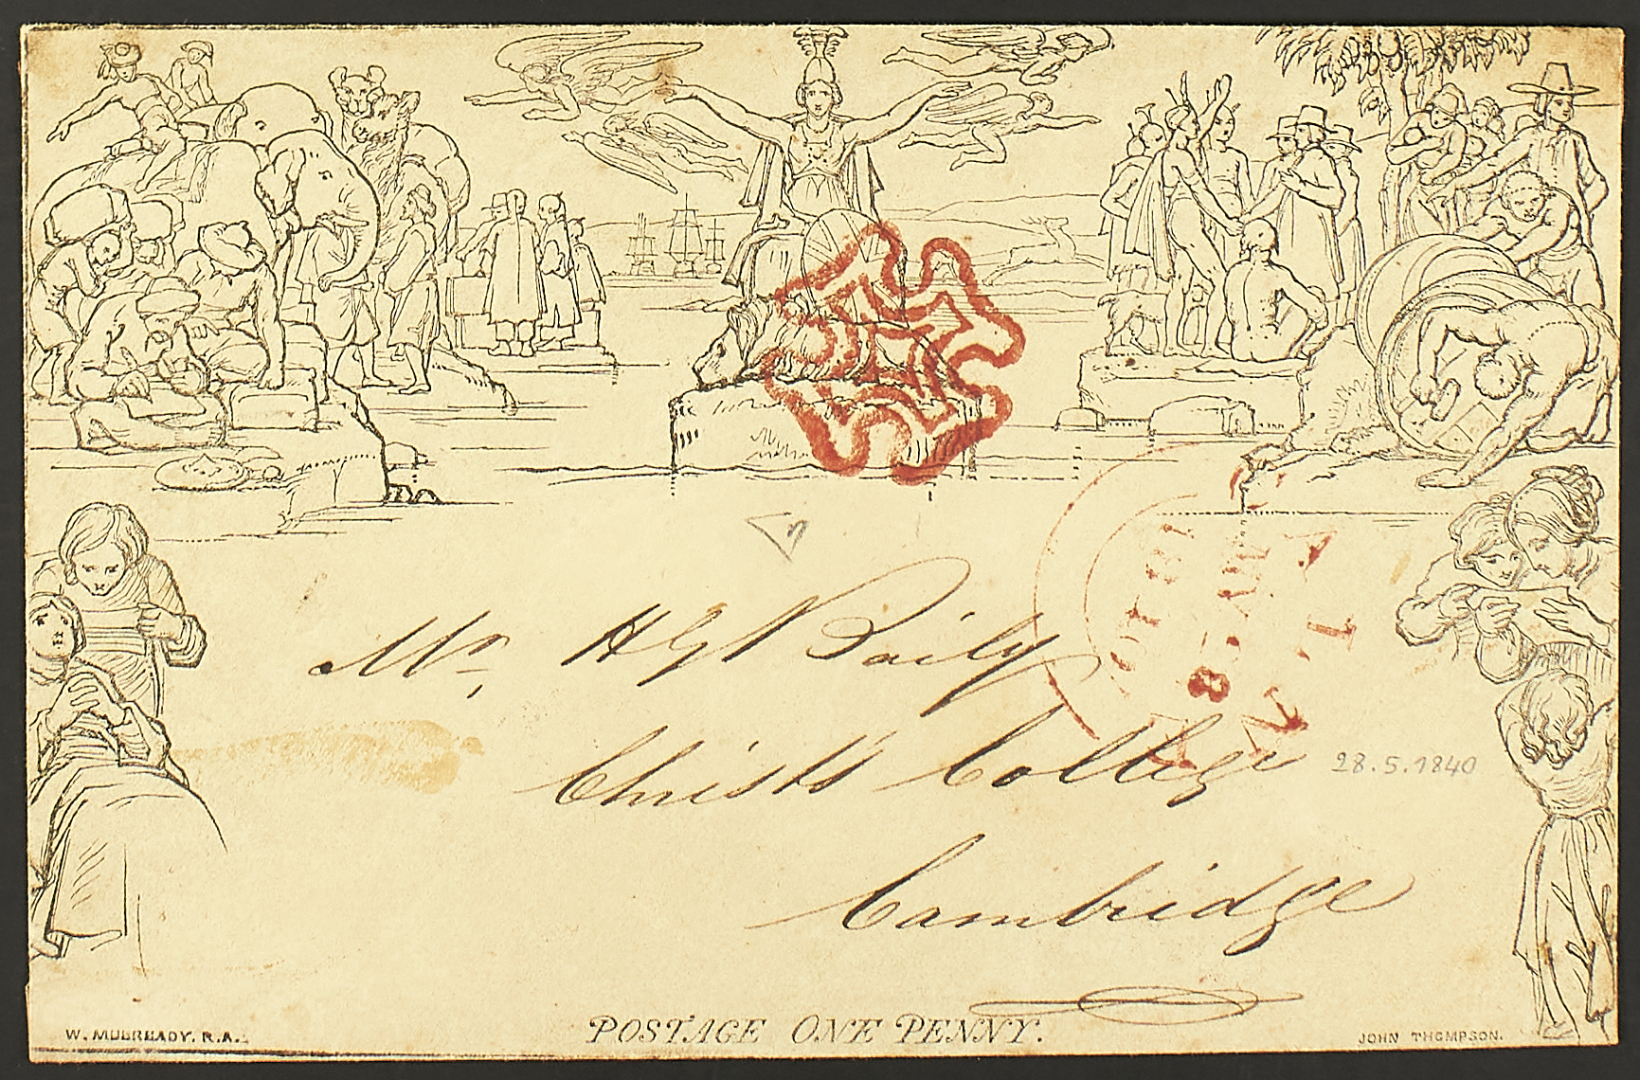 Mr. Hy N Baily
Christ's College
28.5.1840
Cambridge
POSTAGE ONE PENNY.
W. MULREADY. R.A.
JOHN THOMPSON.